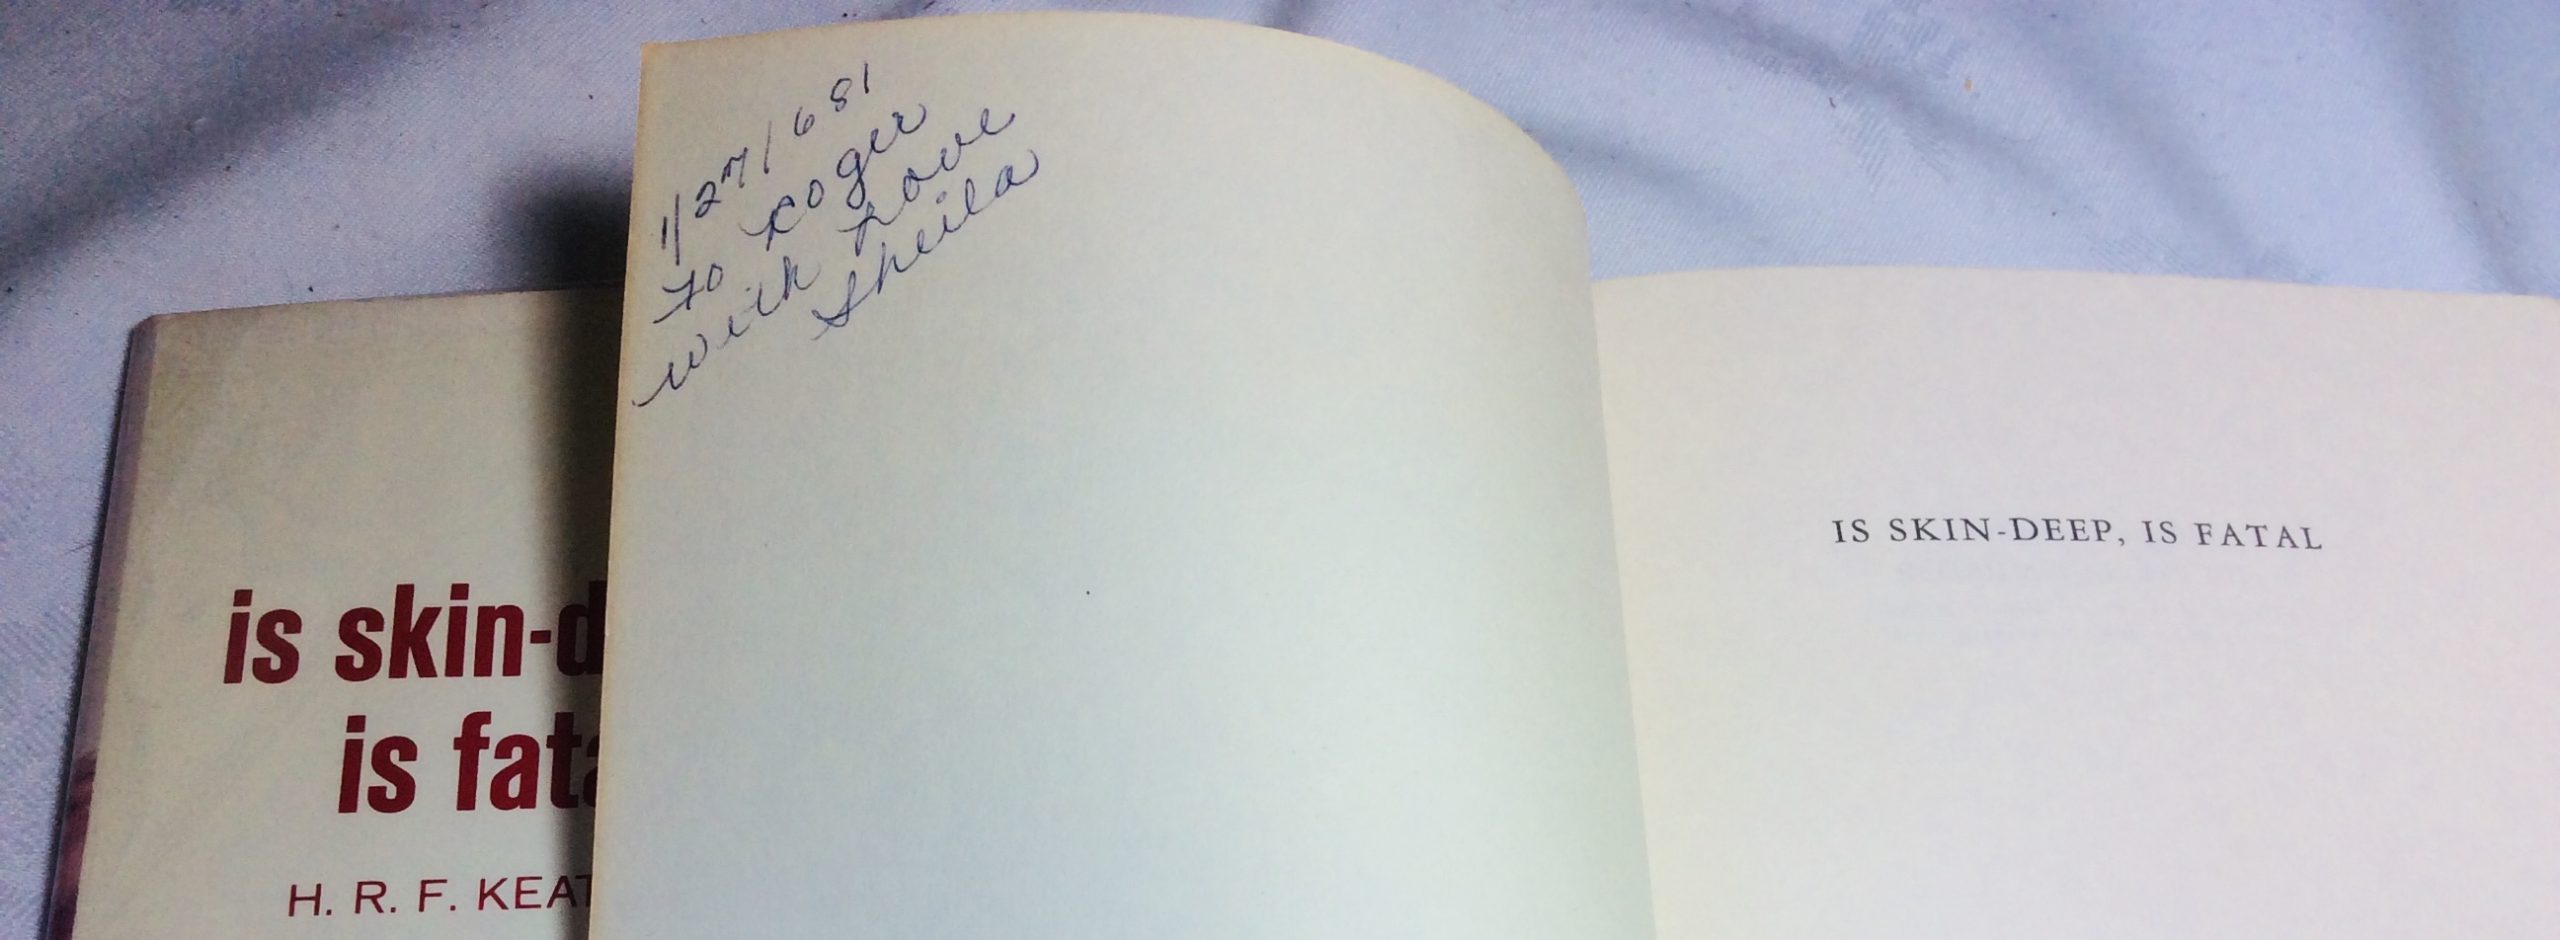 1/27/681
To Roger
with Love
Sheila
is skin-d
is fata
H. R. F. KEAT
IS SKIN-DEEP, IS FATAL